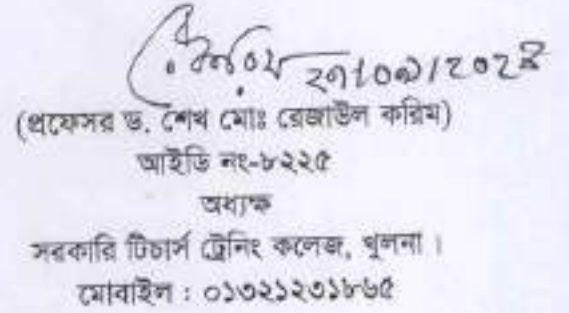 (প্রফেসর ড. শেখ মোঃ রেজাউল করিম)
আইডি নং-৮২২৫
অধ্যক্ষ
সরকারি টিচার্স ট্রেনিং কলেজ, খুলনা ।
মোবাইল : ০১৩২১২৩১৮৬৫